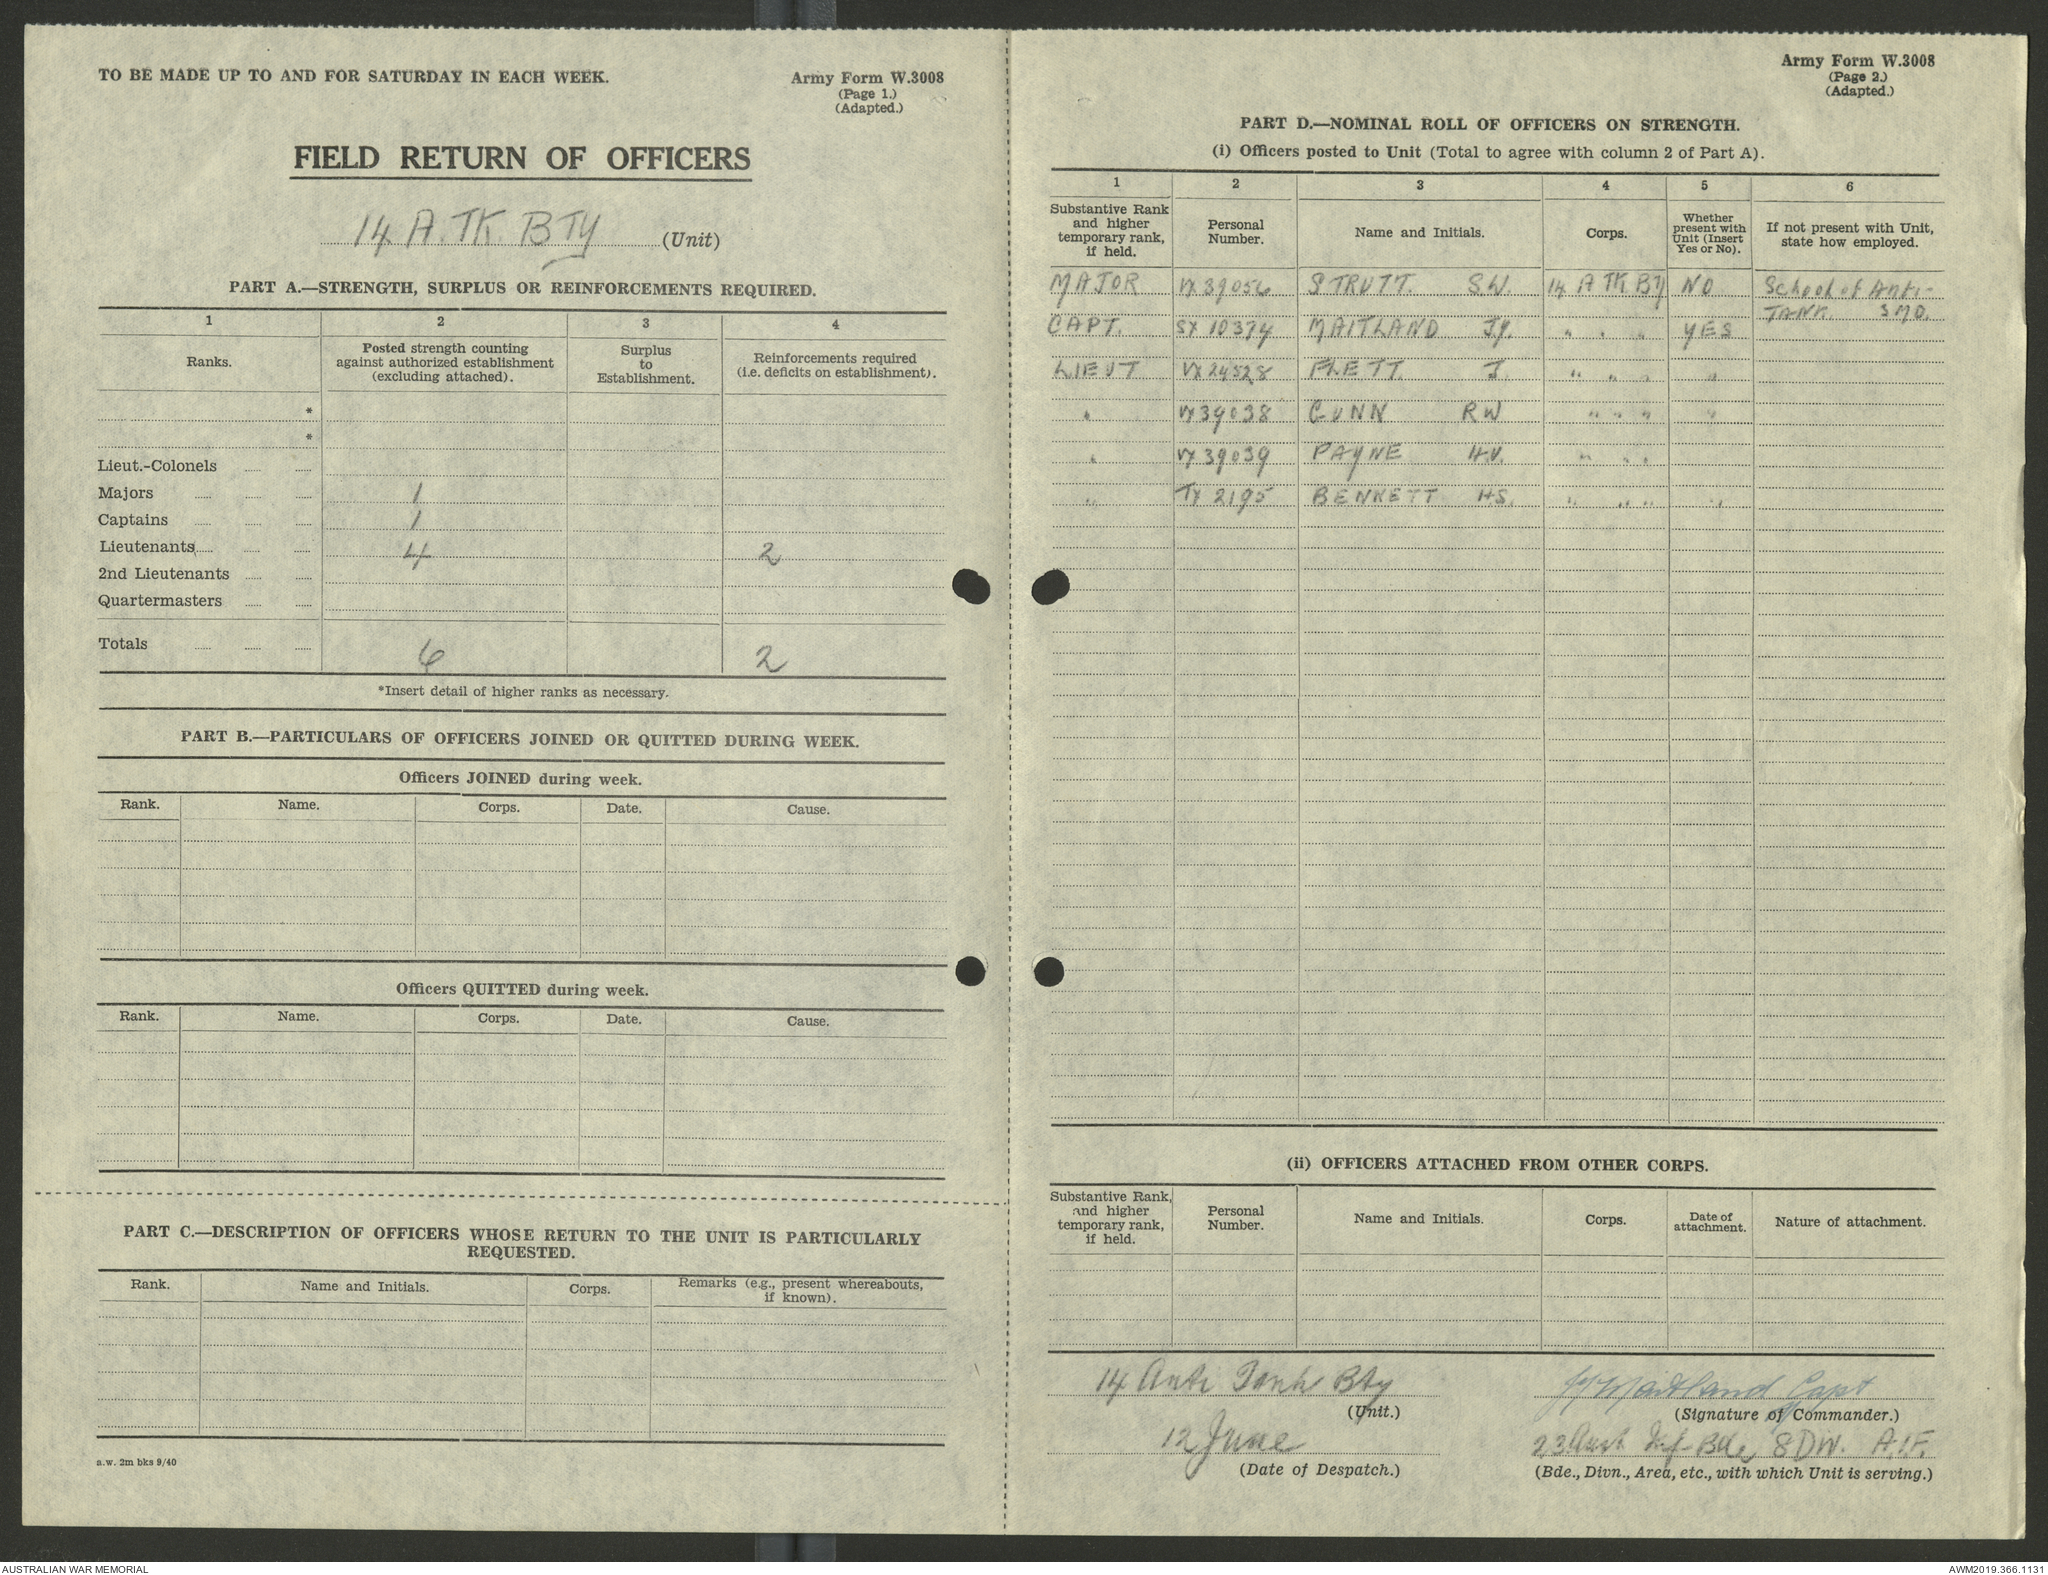 TO BE MADE UP TO AND FOR SATURDAY IN EACH WEEK.
Army Form W.3008
(Page 1.)
(Adapted.)
FIELD RETURN OF OFFICERS
14 A.TK BTY (Unit)
PART A.—STRENGTH, SURPLUS OR REINFORCEMENTS REQUIRED.
1 2 3 4
Ranks. Posted strength counting against authorized establishment (excluding attached). Surplus to Establishment. Reinforcements required (i.e. deficits on establishment).
*
*
Lieut.-Colonels
Majors 1
Captains 1
Lieutenants 4 2
2nd Lieutenants
Quartermasters
Totals 6 2
*Insert detail of higher ranks as necessary.
PART B.—PARTICULARS OF OFFICERS JOINED OR QUITTED DURING WEEK.
Officers JOINED during week.
Rank. Name. Corps. Date. Cause.
Officers QUITTED during week.
Rank. Name. Corps. Date. Cause.
PART C.—DESCRIPTION OF OFFICERS WHOSE RETURN TO THE UNIT IS PARTICULARLY
REQUESTED.
Rank. Name and Initials. Corps. Remarks (e.g., present whereabouts, if known).
a.w. 2m bks 9/40
Army Form W.3008
(Page 2.)
(Adapted.)
PART D.—NOMINAL ROLL OF OFFICERS ON STRENGTH.
(i) Officers posted to Unit (Total to agree with column 2 of Part A).
1 2 3 4 5 6
Substantive Rank and higher temporary rank, if held. Personal Number. Name and Initials. Corps. Whether present with Unit (Insert Yes or No). If not present with Unit, state how employed.
MAJOR VX 39056 STRUTT. S.W. 14 A TK BTY NO School of Anti-
TANK S M D.
CAPT. SX 10374 MAITLAND J.Y. " " " YES
LIEUT VX 24528 FLETT J. " " " "
" VX 39038 GUNN RW " " " "
" VX 39039 PAYNE H.V. " " "
" TX 2195 BENNETT HS. " " " "
(ii) OFFICERS ATTACHED FROM OTHER CORPS.
Substantive Rank, and higher temporary rank, if held. Personal Number. Name and Initials. Corps. Date of attachment. Nature of attachment.
14 Anti Tank Bty
(Unit.)
JY Maitland Capt
(Signature of Commander.)
12 June
(Date of Despatch.)
23 Aust Inf Bde 8 DIV. A.I.F.
(Bde., Divn., Area, etc., with which Unit is serving.)
AUSTRALIAN WAR MEMORIAL
AWM2019.366.1131